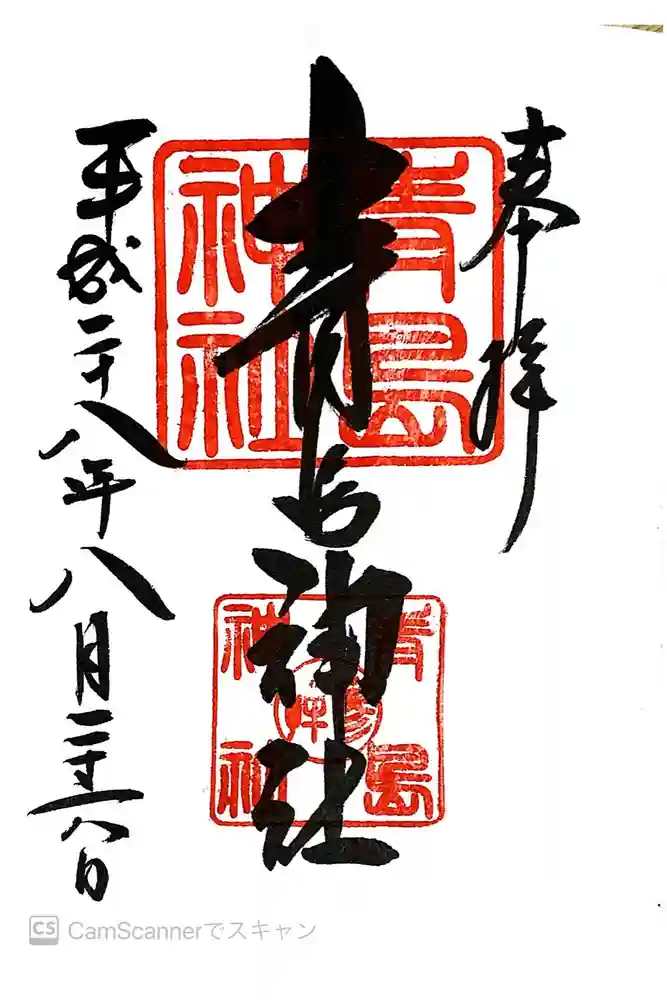 奉拝
青島神社
平成二十八年八月二十六日
青島
神社
青島
神社
参拝
CS CamScannerでスキャン